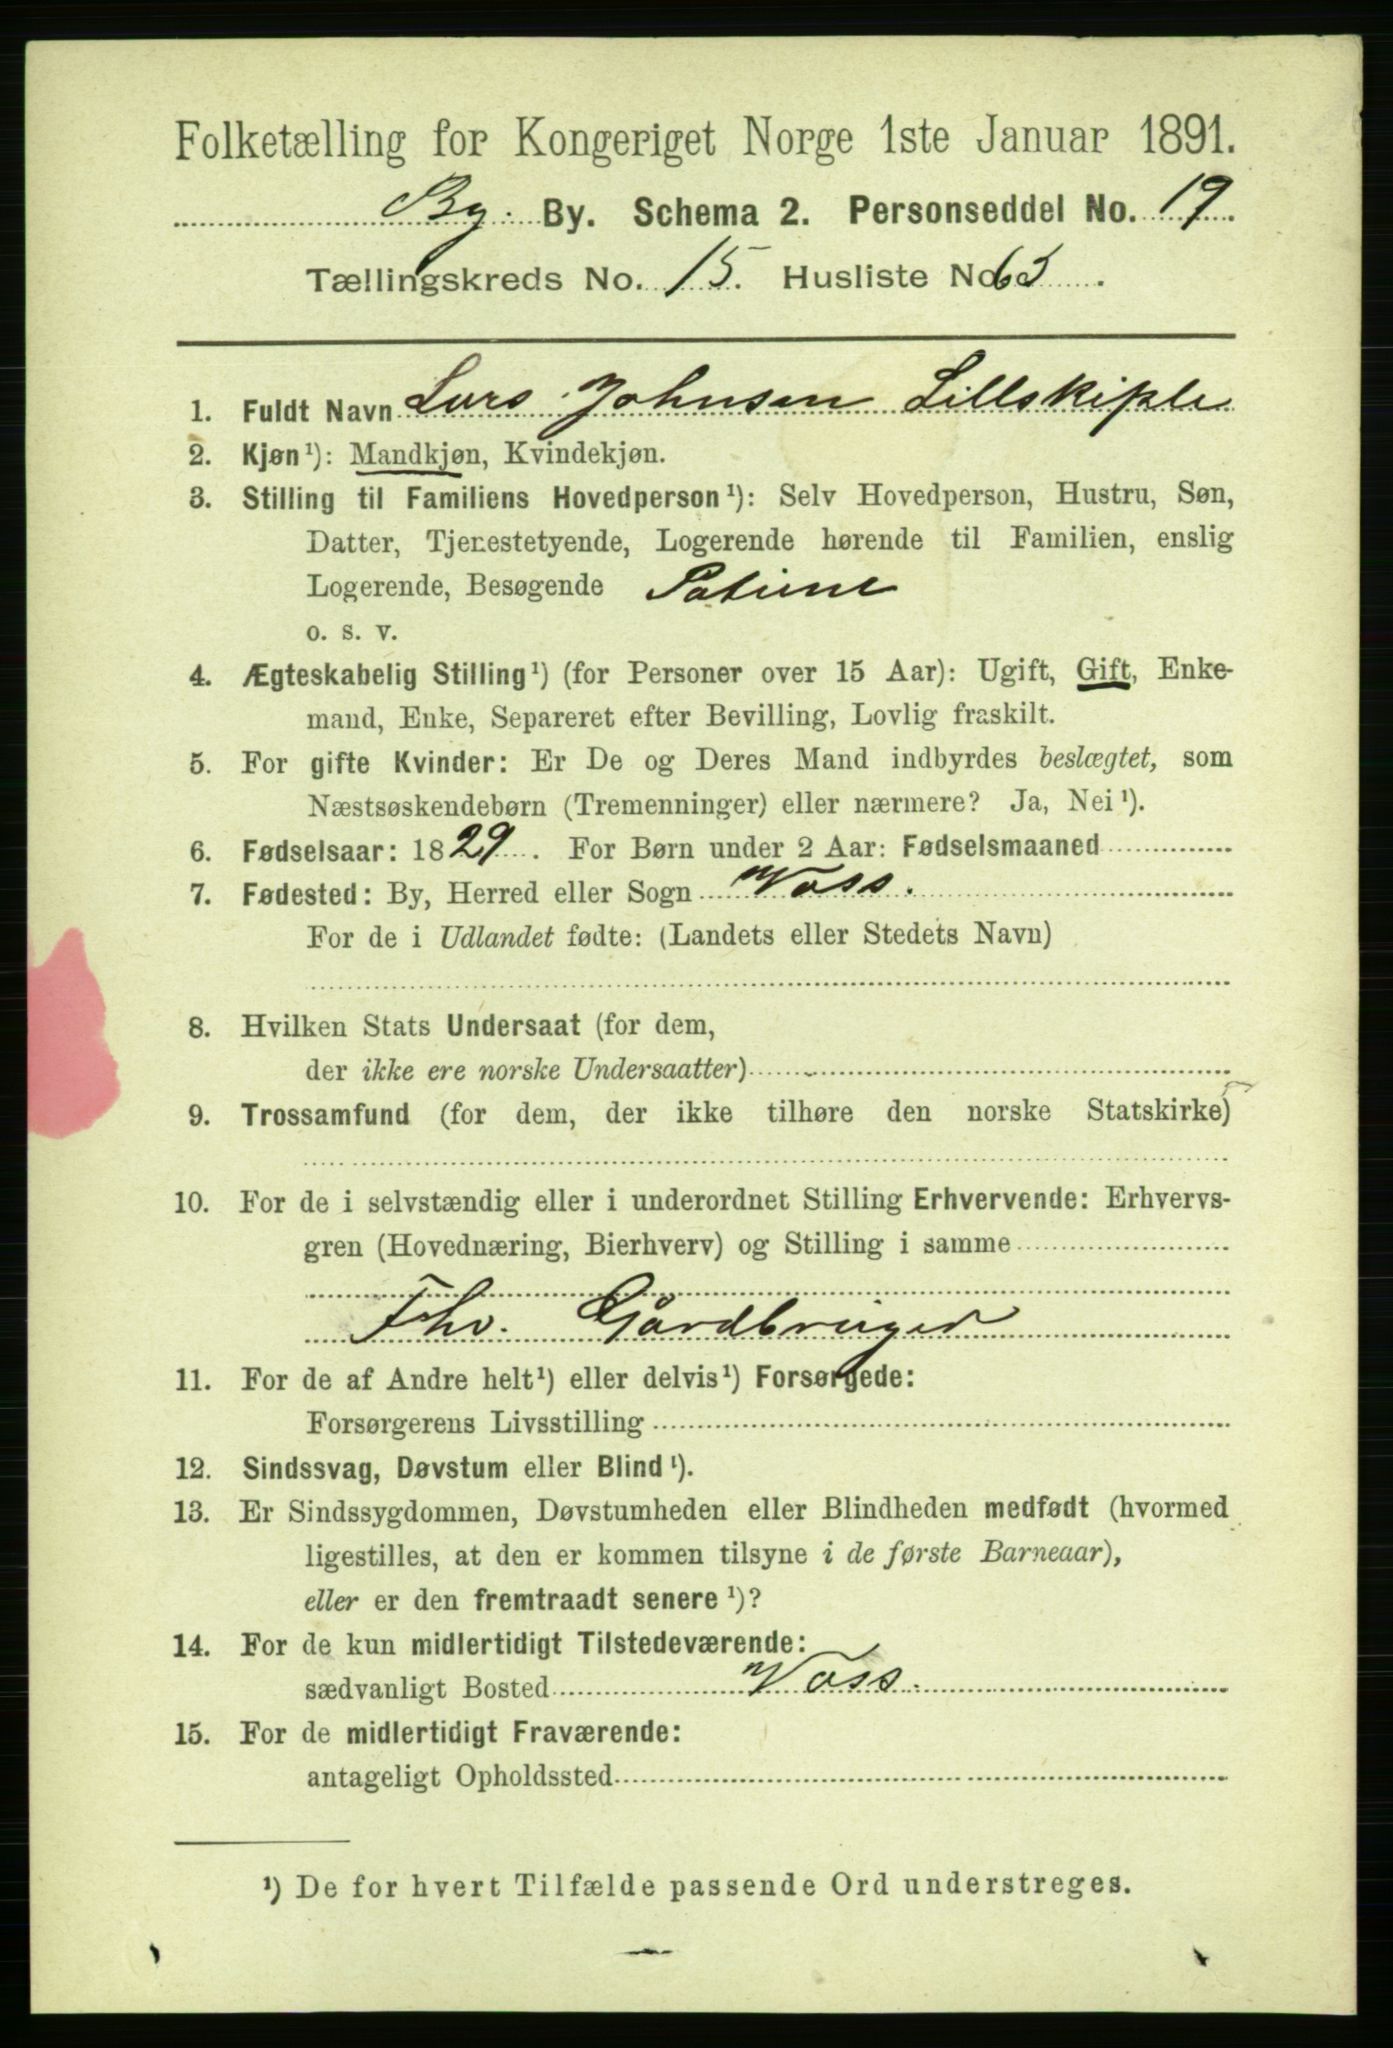 Folketælling for Kongeriget Norge 1ste Januar 1891.
Bg. By. Schema 2. Personseddel No. 19.
Tællingskreds No. 15. Husliste No. 63.
1. Fuldt Navn Lars Johnsen Lillskiple
2. Kjøn¹): Mandkjøn, Kvindekjøn.
3. Stilling til Familiens Hovedperson¹): Selv Hovedperson, Hustru, Søn,
Datter, Tjenestetyende, Logerende hørende til Familien, enslig
Logerende, Besøgende Patient
o. s. v.
4. Ægteskabelig Stilling¹) (for Personer over 15 Aar): Ugift, Gift, Enke-
mand, Enke, Separeret efter Bevilling, Lovlig fraskilt.
5. For gifte Kvinder: Er De og Deres Mand indbyrdes beslægtet, som
Næstsøskendebørn (Tremenninger) eller nærmere? Ja, Nei¹).
6. Fødselsaar: 1829. For Børn under 2 Aar: Fødselsmaaned
7. Fødested: By, Herred eller Sogn Voss.
For de i Udlandet fødte: (Landets eller Stedets Navn)
8. Hvilken Stats Undersaat (for dem,
der ikke ere norske Undersaatter)
9. Trossamfund (for dem, der ikke tilhøre den norske Statskirke)
10. For de i selvstændig eller i underordnet Stilling Erhvervende: Erhvervs-
gren (Hovednæring, Bierhverv) og Stilling i samme
Fhv. Gårdbruger
11. For de af Andre helt¹) eller delvis¹) Forsørgede:
Forsørgerens Livsstilling
12. Sindssvag, Døvstum eller Blind¹).
13. Er Sindssygdommen, Døvstumheden eller Blindheden medfødt (hvormed
ligestilles, at den er kommen tilsyne i de første Barneaar),
eller er den fremtraadt senere¹)?
14. For de kun midlertidigt Tilstedeværende:
sædvanligt Bosted Voss.
15. For de midlertidigt Fraværende:
antageligt Opholdssted
¹) De for hvert Tilfælde passende Ord understreges.